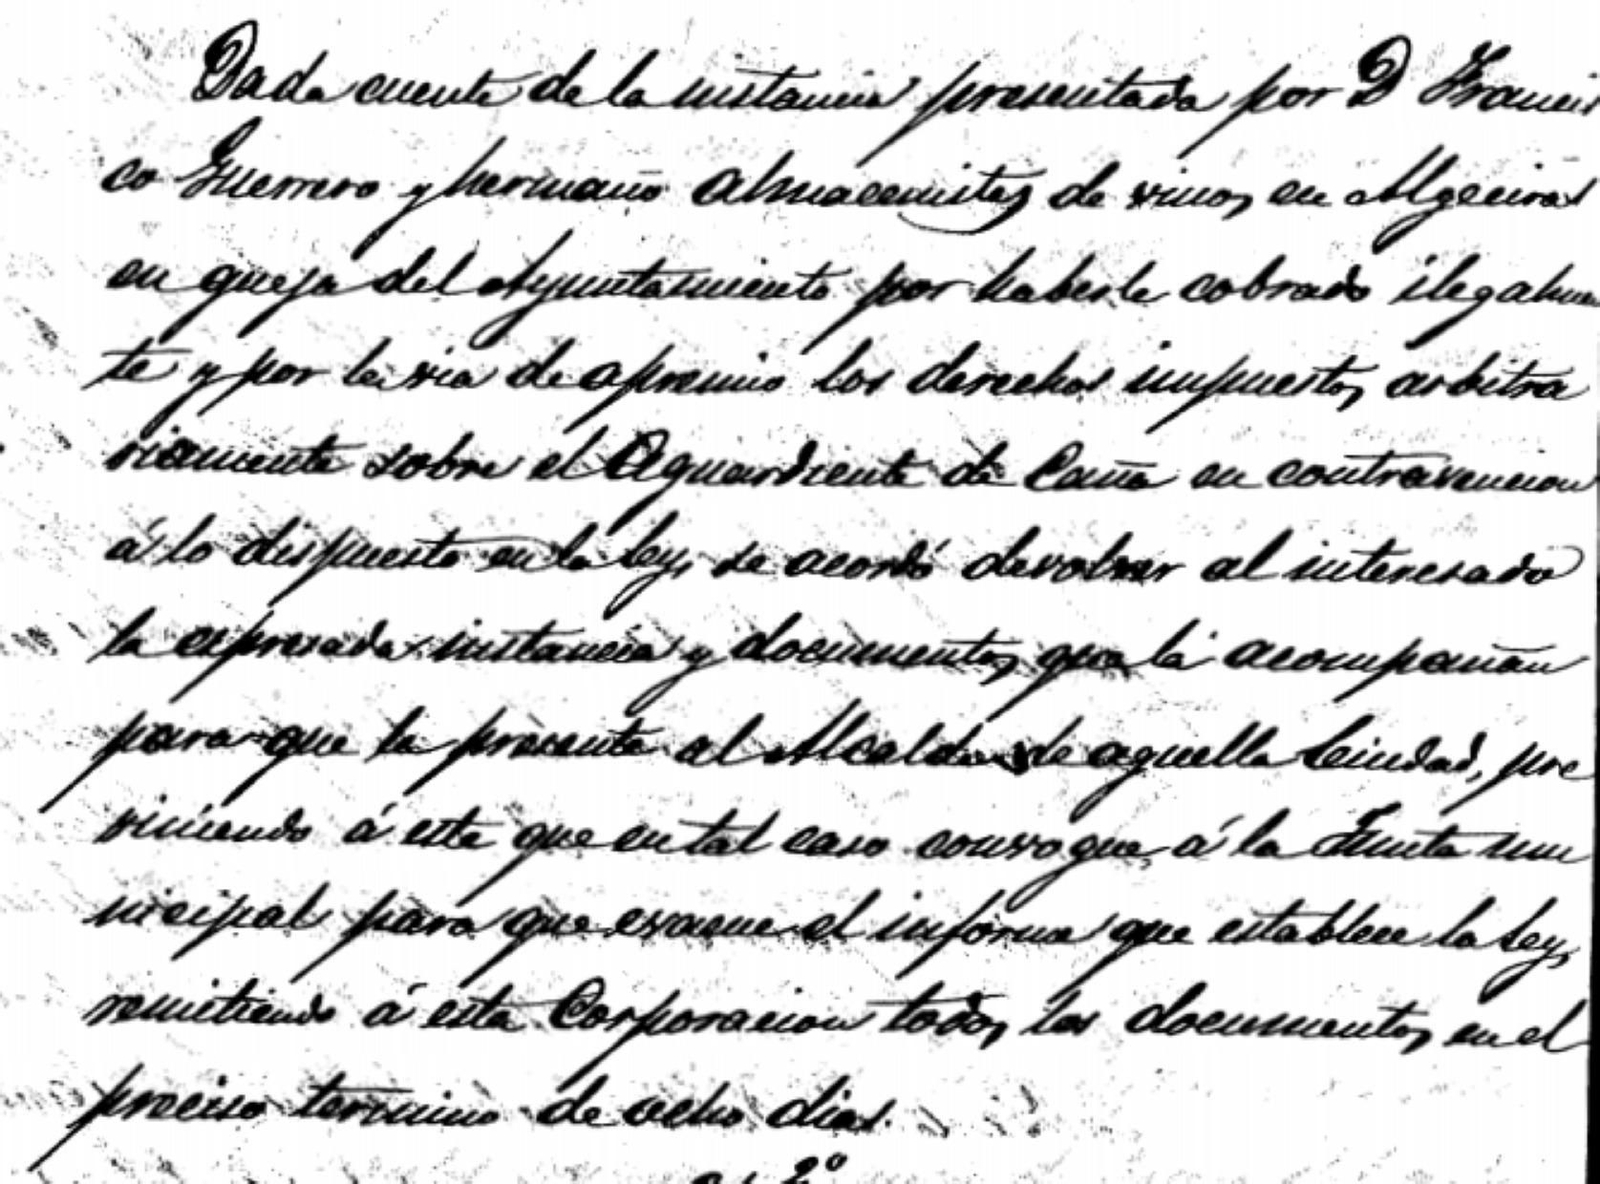 Dada cuenta de la instancia presentada por D Francis
co Guerrero y hermano almacenistas de vinos en Algeciras
en queja del Ayuntamiento por haberle cobrado ilegalmen
te y por la via de apremio los derechos impuestos arbitra
riamente sobre el Aguardiente de Caña en contravencion
á lo dispuesto en la ley, se acordó devolver al interesado
la espresada instancia y documentos que la acompañan
para que la presente al Alcalde de aquella Ciudad, pre
viniendo á este que en tal caso convoque á la Junta mu
nicipal para que evacue el informe que establece la Ley,
remitiendo á esta Corporacion todos los documentos en el
preciso termino de ocho dias.
2º